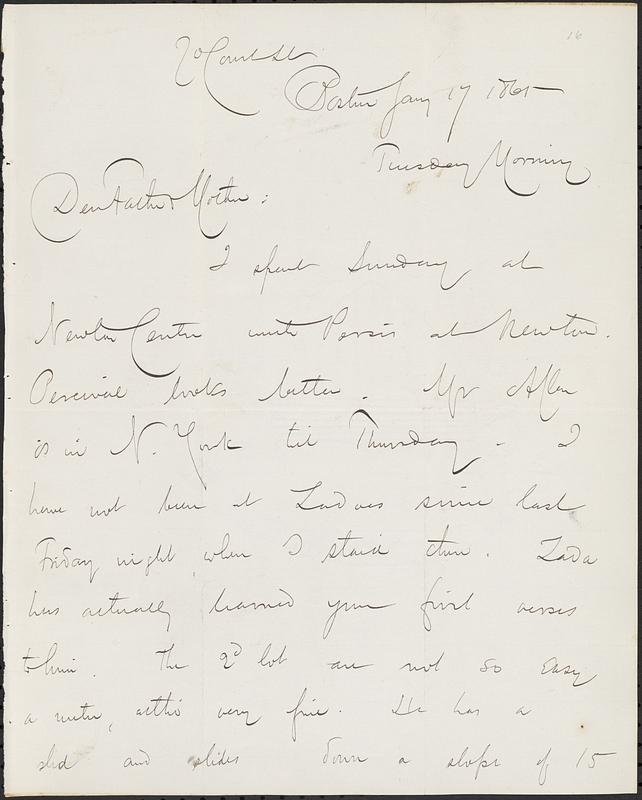 16
20 Court St.
Boston Jany 17 1865
Tuesday Morning
Dear Father & Mother:
I spent Sunday at
Newton Centre with Persis at Newton.
Percival looks better. Mr Allen
is in N. York til Thursday - I
have not been at Zadoes since last
Friday night, when I staid there. Zada
has actually learned your first verses
to him. The 2d lot are not so easy
a metre, altho' very fine. He has a
sled and slides down a slope of 15